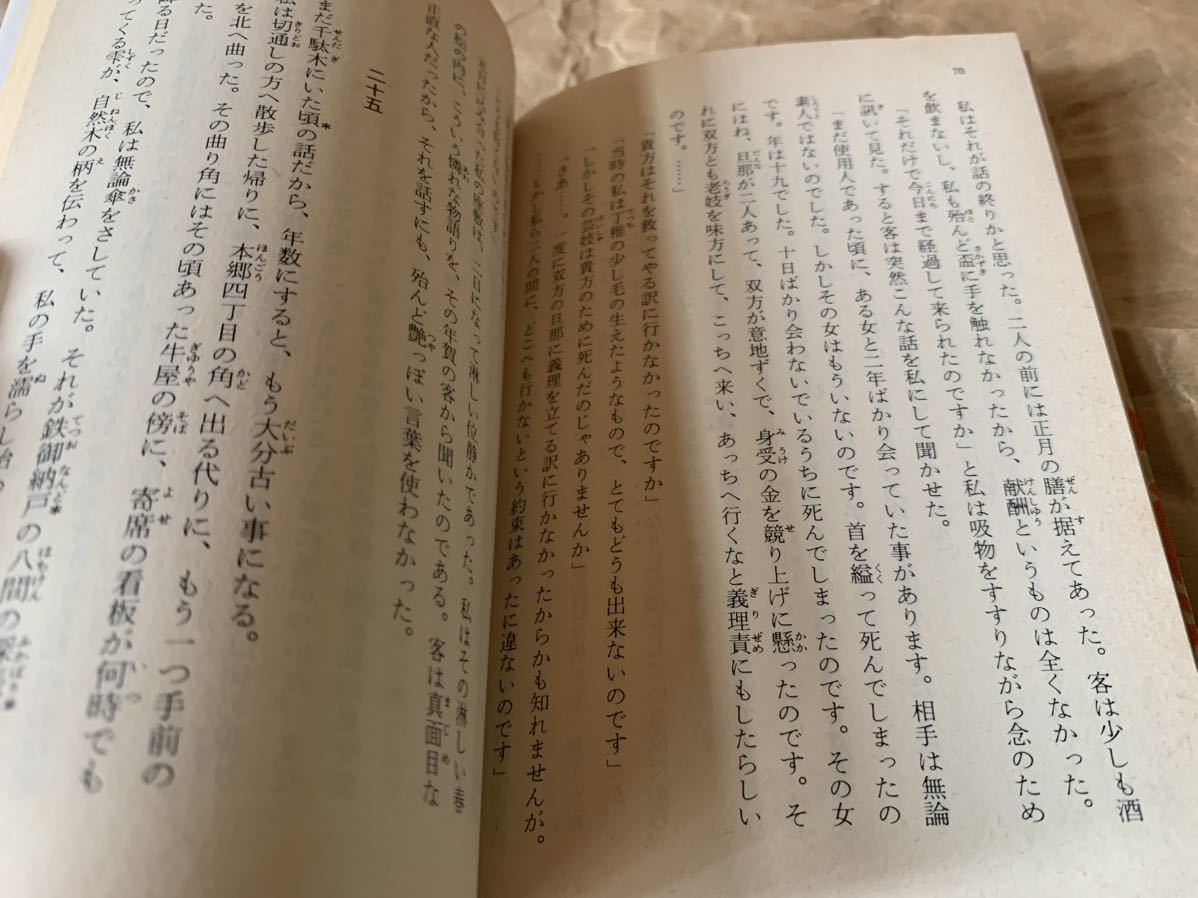 70
私はそれが話の終りかと思った。二人の前には正月の膳が据えてあった。客は少しも酒
を飲まないし、私も殆んど盃に手を触れなかったから、献酬というものは全くなかった。
「それだけで今日まで経過して来られたのですか」と私は吸物をすすりながら念のため
に訊いて見た。すると客は突然こんな話を私にして聞かせた。
「まだ使用人であった頃に、ある女と二年ばかり会っていた事があります。相手は無論
素人ではないのでした。しかしその女はもういないのです。首を縊って死んでしまったの
です。年は十九でした。十日ばかり会わないでいるうちに死んでしまったのです。その女
にはね、旦那が二人あって、双方が意地ずくで、身受の金を競り上げに懸ったのです。そ
れに双方とも老妓を味方にして、こっちへ来い、あっちへ行くなと義理責にもしたらしい
のです。……」
「貴方はそれを救ってやる訳に行かなかったのですか」
「当時の私は丁稚の少し毛の生えたようなもので、とてもどうも出来ないのです」
「しかしその芸妓は貴方のために死んだのじゃありませんか」
「さあ……。一度に双方の旦那に義理を立てる訳に行かなかったからかも知れませんが。
……しかし私ら二人の間に、どこへも行かないという約束はあったに違ないのです」
私の座敷は、二日になって淋しい位静かであった。私はその淋しい春
の松の内に、こういう憐れな物語りを、その年賀の客から聞いたのである。客は真面目な
正直な人だったから、それを話すにも、殆んど艶っぽい言葉を使わなかった。
二十五
まだ千駄木にいた頃の話だから、年数にすると、もう大分古い事になる。
私は切通しの方へ散歩した帰りに、本郷四丁目の角へ出る代りに、もう一つ手前の
を北へ曲った。その曲り角にはその頃あった牛屋の傍に、寄席の看板が何時でも
た。
降る日だったので、私は無論傘をさしていた。それが鉄御納戸の八間の深
ってくる雫が、自然木の柄を伝わって、私の手を濡らし始